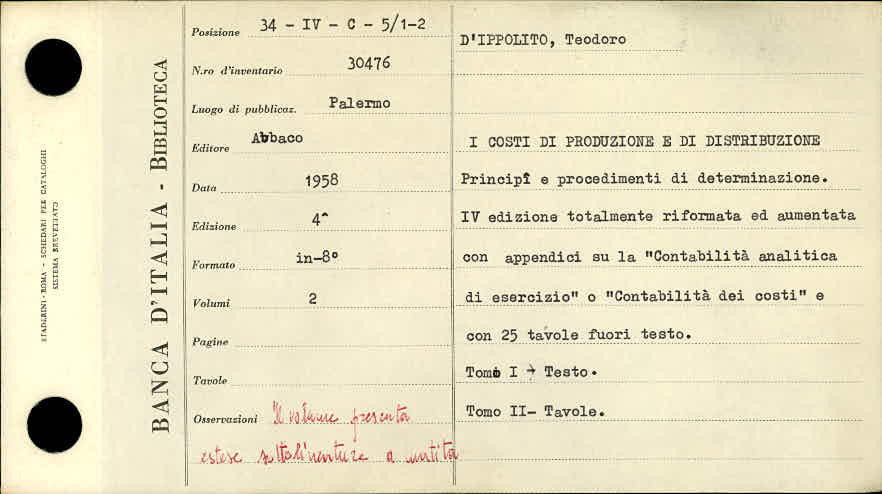 STADERINI - ROMA - SCHEDARI PER CATALOGHI
SISTEMA BREVETTATO
BANCA D'ITALIA - BIBLIOTECA
Posizione 34 - IV - C - 5/1-2
N.ro d'inventario 30476
Luogo di pubblicaz. Palermo
Editore Abbaco
Data 1958
Edizione 4^
Formato in-8°
Volumi 2
Pagine
Tavole
Osservazioni Il volume presenta
estese sottolineature a matita
D'IPPOLITO, Teodoro
I COSTI DI PRODUZIONE E DI DISTRIBUZIONE
Principî e procedimenti di determinazione.
IV edizione totalmente riformata ed aumentata
con appendici su la "Contabilità analitica
di esercizio" o "Contabilità dei costi" e
con 25 tavole fuori testo.
Tomo I - Testo.
Tomo II- Tavole.